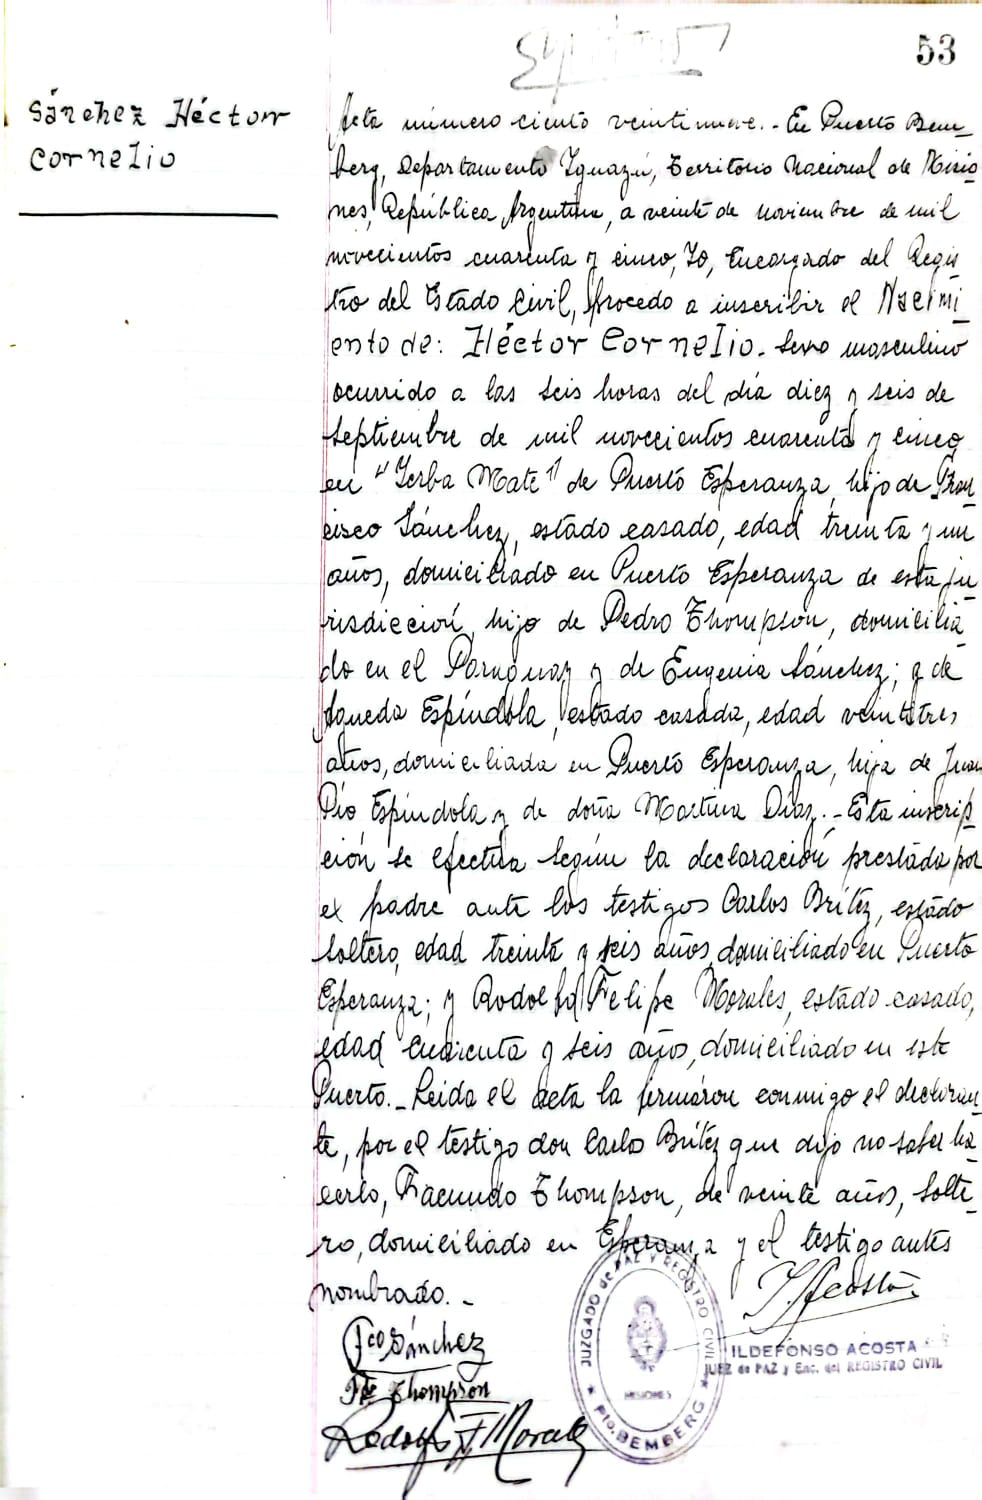 53
Sánchez Héctor
Cornelio
Acta número ciento veintinueve.- En Puerto Bem_
berg, Departamento Iguazú, Territorio Nacional de Misio_
nes, República Argentina, a veinte de noviembre de mil
novecientos cuarenta y cinco, Yo, Encargado del Regis_
tro del Estado Civil, procedo a inscribir el Nacimi_
ento de: Héctor Cornelio. Sexo masculino
ocurrido a las seis horas del día diez y seis de
septiembre de mil novecientos cuarenta y cinco,
en "Yerba Mate" de Puerto Esperanza, hijo de Fran_
cisco Sánchez, estado casado, edad treinta y un
años, domiciliado en Puerto Esperanza de esta ju_
risdicción, hijo de Pedro Thompson, domicilia_
do en el Paraguay y de Eugenia Sánchez; y de
Agueda Espíndola, estado casada, edad veintitres
años, domiciliada en Puerto Esperanza, hija de Juan
Pío Espíndola y de doña Martina Díaz.- Esta inscrip_
ción se efectúa según la declaración prestada por
el padre ante los testigos Carlos Brítez, estado
soltero, edad treinta y seis años, domiciliado en Puerto
Esperanza; y Rodolfo Felipe Morales, estado casado,
edad cuarenta y seis años, domiciliado en este
Puerto._ Leída el acta la firmaron conmigo el declaran_
te, por el testigo don Carlo Brítez que dijo no saber ha_
cerlo, Facundo Thompson, de veinte años, solte_
ro, domiciliado en Esperanza y el testigo antes
nombrado._
I. Acosta
Fco Sánchez
ILDEFONSO ACOSTA
JUEZ de PAZ y Enc. del REGISTRO CIVIL
Thompson
Rodolfo F Morales
JUZGADO de PAZ Y REGISTRO CIVIL
MISIONES
Pto. BEMBERG